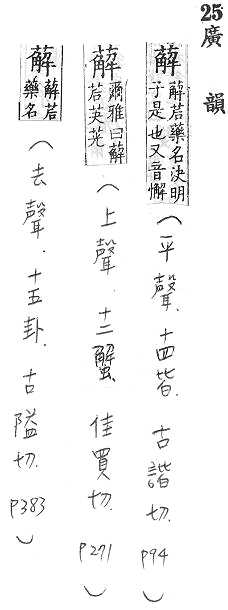 25廣韻
薢 薢茩藥名決明子是也又音懈(平聲.十四皆.古諧切.P94)
薢 爾雅曰薢茩英茪(上聲.十二蟹.佳買切.P271)
薢 薢茩藥名(去聲.十五卦.古隘切.P383)